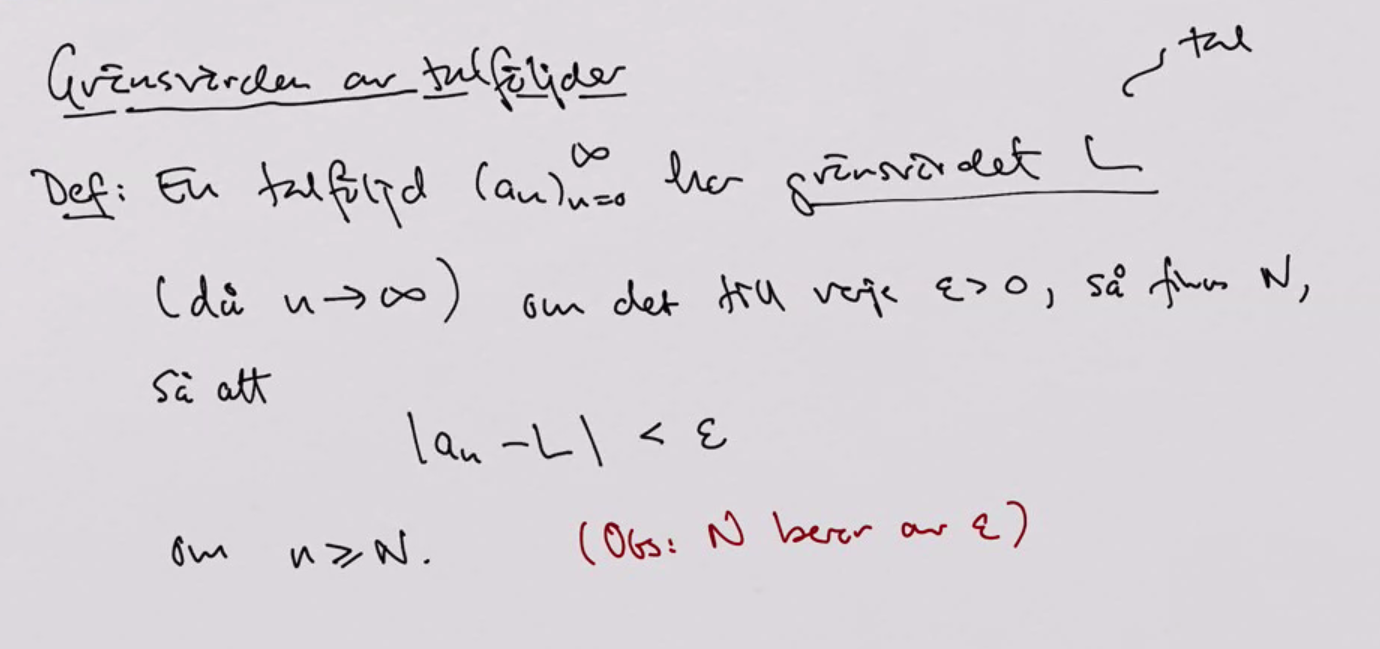 tal
Gränsvärden av talföljder
Def: En talföljd (aₙ)ₙ₌₀^∞ har gränsvärdet L
(då n→∞) om det till varje ε>0, så finns N,
så att
|aₙ - L| < ε
om n ≥ N. (Obs: N beror av ε)